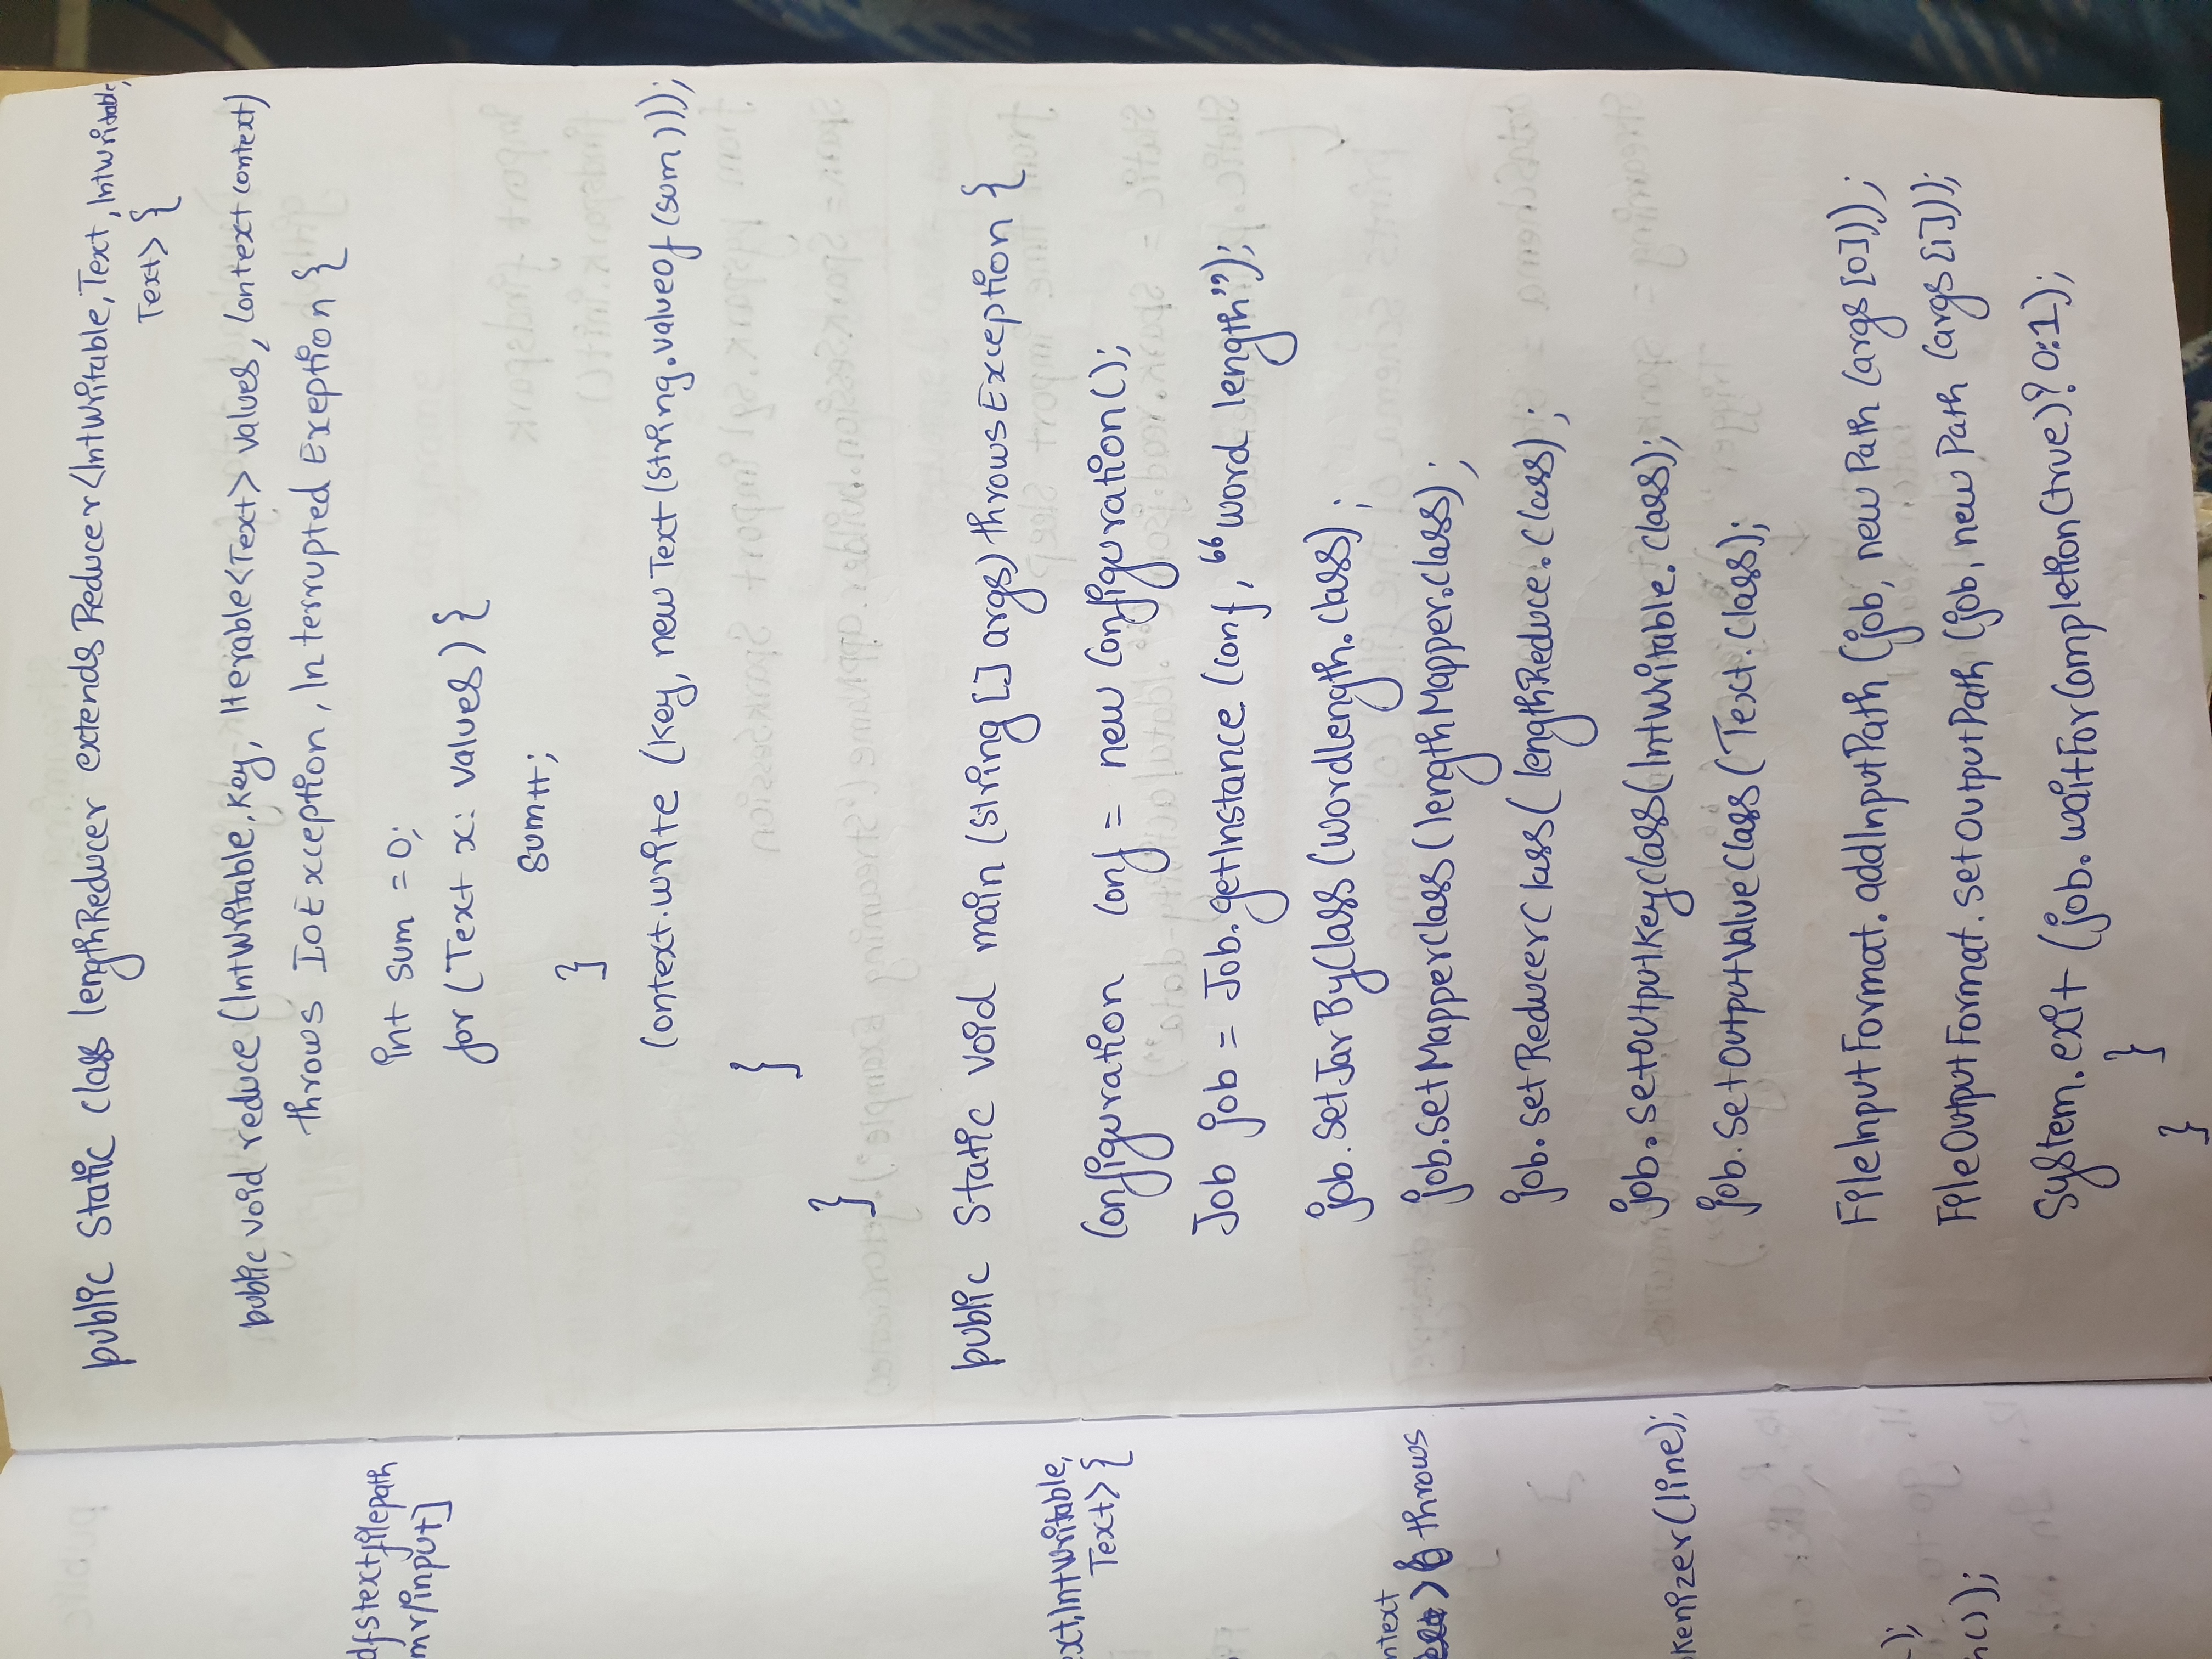 dfstextfilepath
mr/input]
ext,IntWritable,
Text>{
ntext
throws
kenizer(line);
);
n());
public Static class lengthReducer extends Reducer<IntWritable, Text, IntWritable,
Text> {
public void reduce (IntWritable, Key, Iterable<Text> values, Context context)
throws IOException, Interrupted Exeption {
int sum = 0;
for (Text x: values) {
sum++;
}
Context.write (Key, new Text (String.valueof (sum)));
}
}
public Static void main (String [] args) throws Exception {
Configuration conf = new Configuration();
Job job = Job.getInstance (conf, "word length");
job.SetJarByClass (wordLength.class);
job.SetMapperclass (lengthMapper.class);
job.setReducerClass( lengthReduce.class);
job.setoutputKeyclass( IntWritable.class);
job.SetOutputValueClass ( Text.class);
FileInputFormat.addInputPath (job, new Path (args [0]));
FileOutputFormat.setoutputPath (job, new Path (args [1]));
System.exit (job.waitForCompletion(true)? 0:1);
}
}